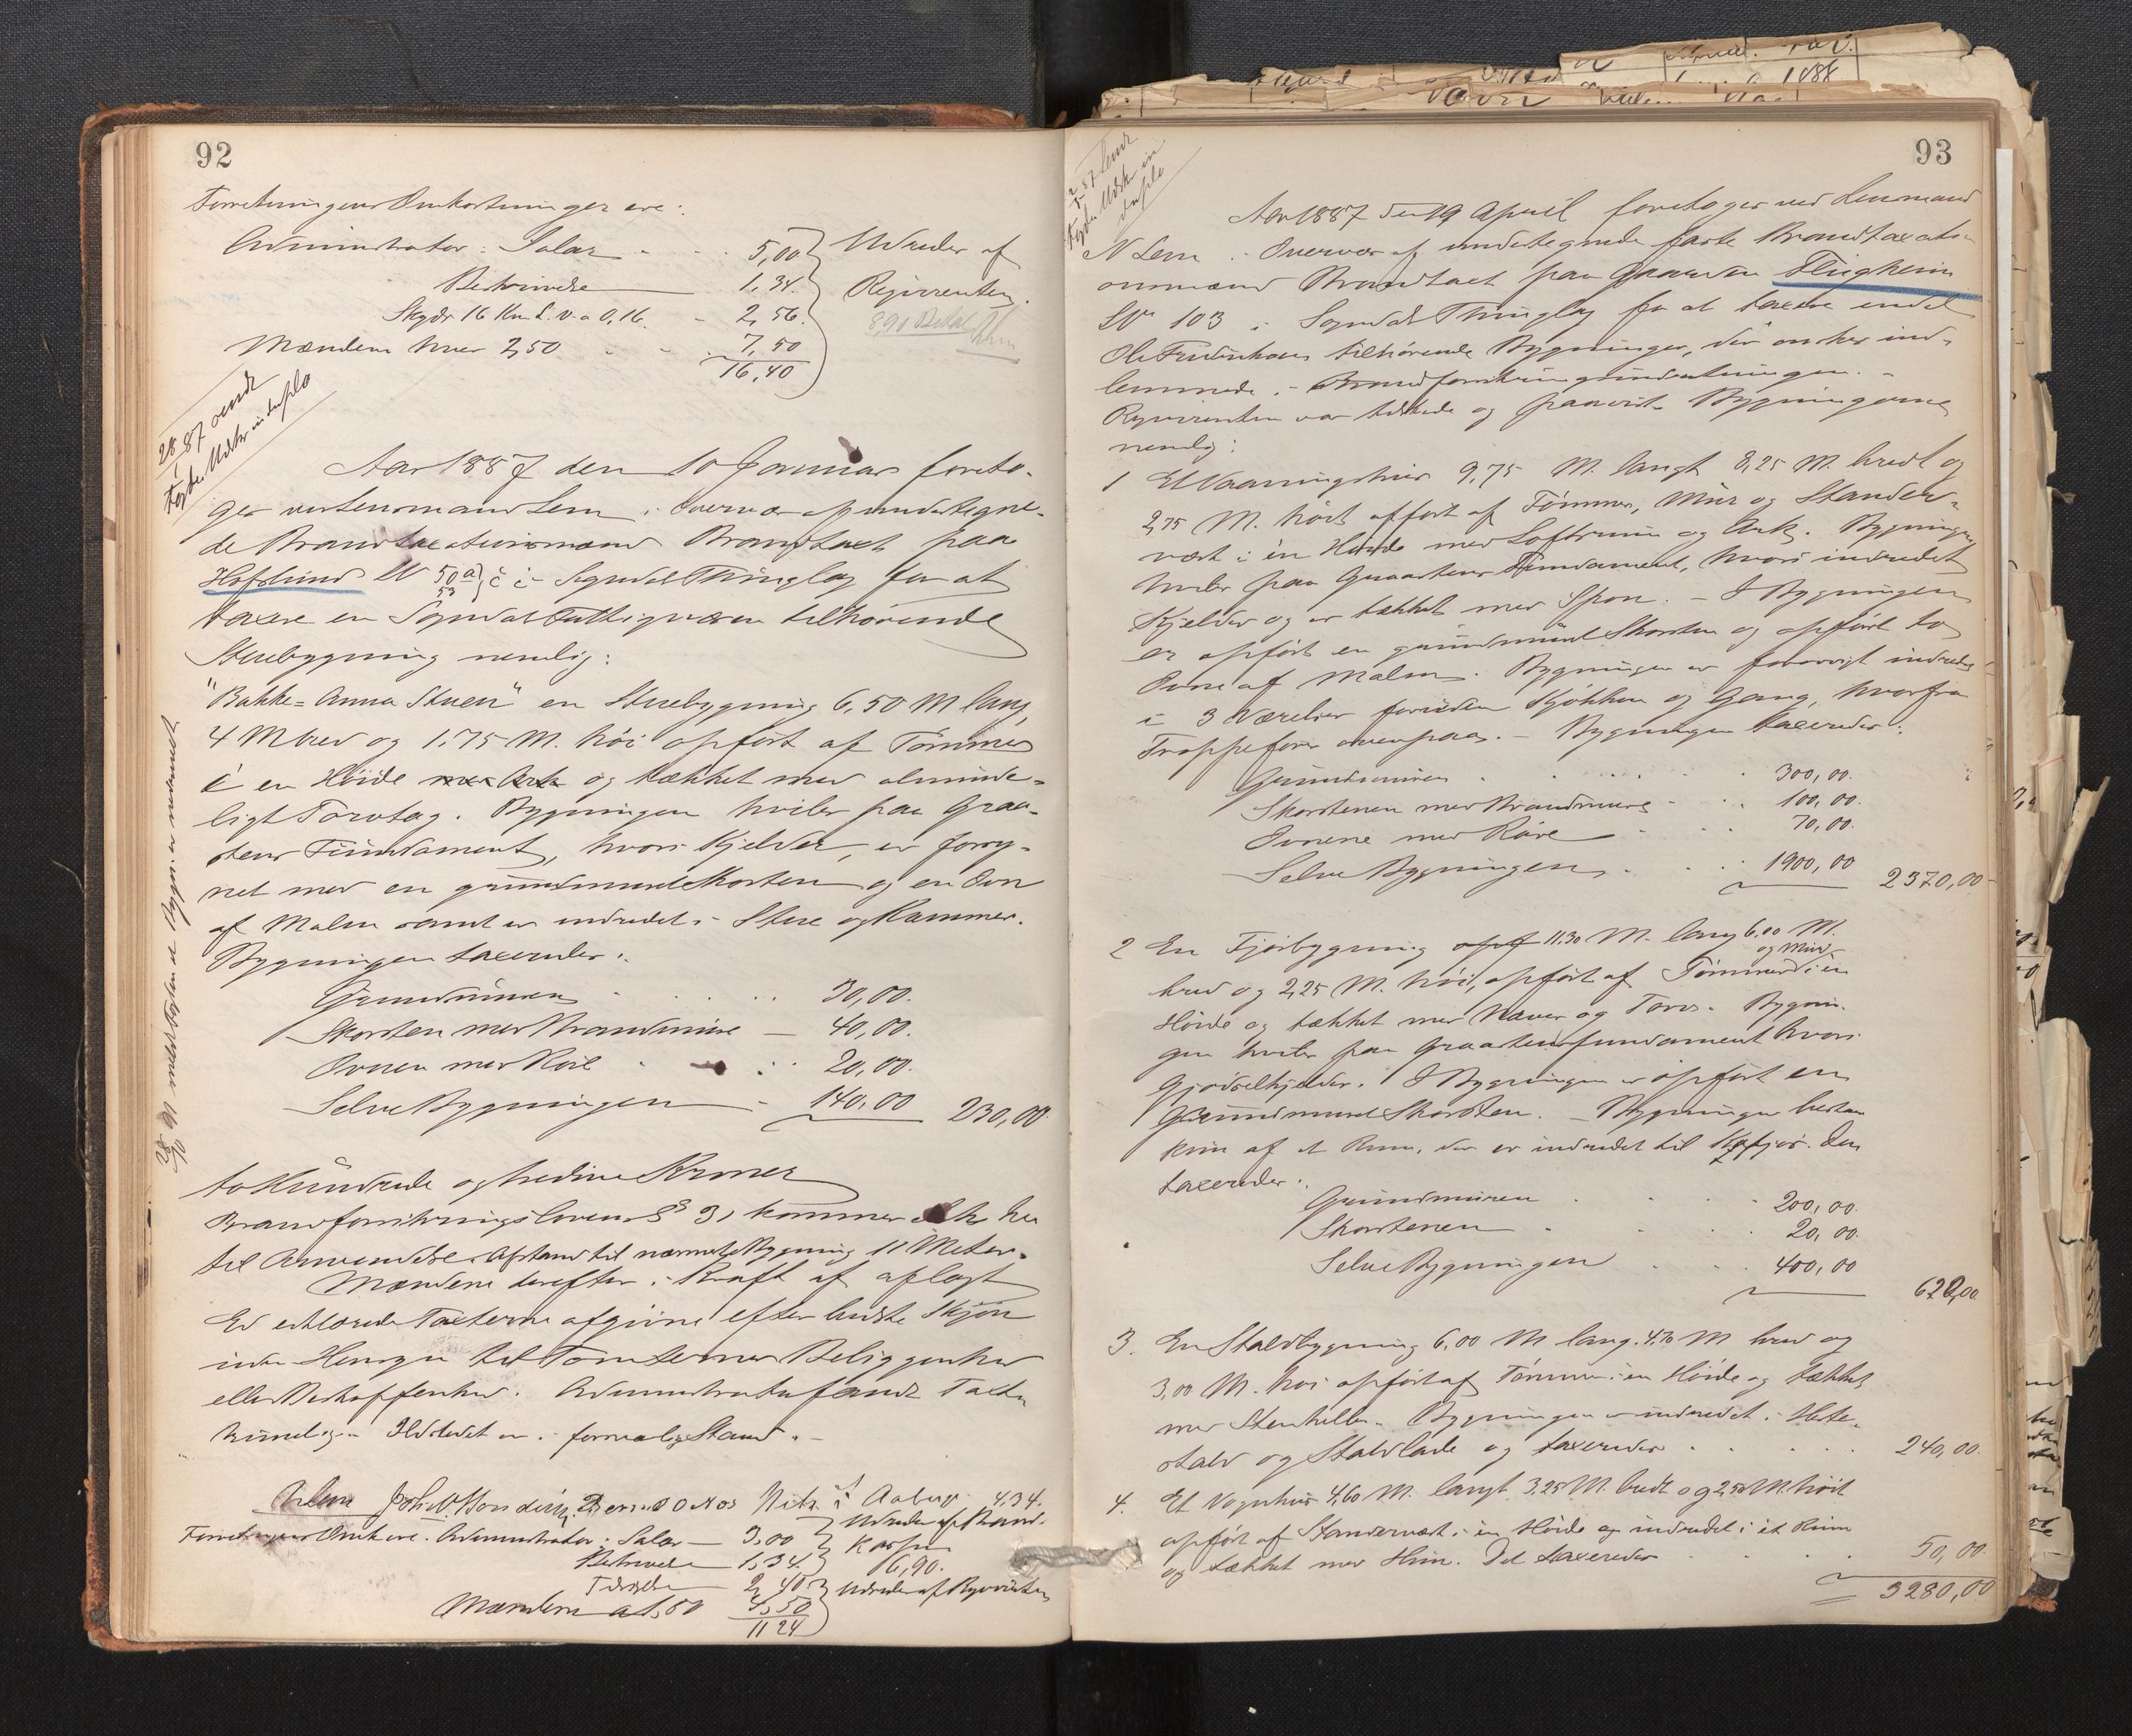 92
Forretningens Omkostninger ere:
Administrator: Salær 5,00 Udredes af
Beskrivelse 1,34 Reqvirenten.
Skyds 16 Km L. V. a 0,16. 2,56. 8,90 Betalt
Mændene hver 2,50 7,50
16,40
28/1 87 sendt
Fogden Udskr in duplo
Aar 1887 den 10 Januar foreta-
ges ved Lensmand Lem i Overvær af undertegne-
de Brandtaxationsmænd Brandtaxt paa
Hofslund LN 50a 53 c i Sogndal Thinglag for at
taxere en Sogndal Fattigvæsen tilhørende
Stuebygning nemlig:
"Bakke-Anna Stuen" en Stuebygning 6,50 M lang,
4 M bred og 1,75 M. høi opført af Tømmer
i en Høide med Ark og tækket med alminde-
ligt Torvtag. Bygningen hviler paa Graa-
stens Fundament, hvori Kjelder, er forsy-
net med en grundmuret Skorsten og en Ovn
af Malm samt er indredet i Stue og Kammer.
Bygningen taxeredes:
Grundmuren 30,00.
Skorsten med Brandmure 40,00.
Ovnen med Rør 20,00.
Selve Bygningen 140,00 230,00.
to Hundrede og tredive Kroner
Brandforsikringslovens § 31 kommer ikke her
til Anvendelse. Afstand til nærmeste Bygning 11 Meter.
Mændene derefter i Kraft af aflagt
Ed erklærede Taxterne afgivne efter bedste Skjøn
uden Hensyn til Tomternes Beliggenhed
eller Beskaffenhed. Administrator fandt Taxten
rimelig. Ildstedet er i forsvarlig Stand.
NLem
Forretningens Omk ere. Administrator: Salær 3,00 Udredes af Brand-
Beskrivelse 1,34 Kassen
2,40 6,90.
Mændene a 1,50 4,50 Udredes af Reqvirenten
11 24
4,34.
28/10 91 meldt Fogden at Bygn. er nedrevet
93
Fogden Udskr in
duplo
Aar 1887 den 19 April foretoges ved Lensmand
N Lem i Overvær af undertegnede faste Brandtaxati-
onsmænd Brandtaxt paa Gaarden Flugheim
LN 103 i Sogndals Thinglag for at taxere endel
Ole tilhørende Bygninger, der ønskes ind-
lemmede i Brandforsikringsindretningen.
Reqvirenten var tilstede og paaviste Bygningerne
nemlig:
1 Et Vaaningshus 9,75 M. langt 8,25 M. bredt og
2,75 M. høit opført af Tømmer, Mur og Stander-
værk i en Høide med Loftsrum og Ark. Bygningen
hviler paa Graastens Fundament, hvori indredet
Kjelder og er tækket med Spon. - I Bygningen
er opført en grundmuret Skorsten og opført to
Ovne af Malm. Bygningen er forøvrigt indredet
i 3 Værelser foruden Kjøkken og Gang, hvorfra
Trappe fører ovenpaa. - Bygningen taxeredes:
Grundmuren 300,00.
Skorstenen med Brandmure 100,00.
Ovnene med Røre 70,00.
Selve Bygningen 1900,00 2370,00
2 En Fjøsbygning opf 11,30 M. lang 6,00 M.
bred og 2,25 M. høi, opført af Tømmer og Mur i en
Høide og tækket med Næver og Torv. Bygnin-
gen hviler paa Graastensfundament hvori
Gjødselkjelder. I Bygningen er opført en
Grundmuret Skorsten. - Bygningen bestaar
kun af et Rum, der er indredet til Kufjøs. Den
taxeredes:
Grundmuren 200,00.
Skorstenen 20,00.
Selve Bygningen 400,00
620,00
3. En Staldbygning 6,00 M lang. 4,70 M bred og
3,00 M. høi opført af Tømmer i en Høide og tækket
med Stenheller. Bygningen er indredet i Heste-
stald og Staldlade og taxeredes 240,00.
4. Et Vognhus 4,60 M. langt 3,25 M. bredt og 2,50 M. høit
opført af Standerværk i en Høide og indredet i et Rum
og tækket med Hun. Det taxeredes 50,00.
3280,00